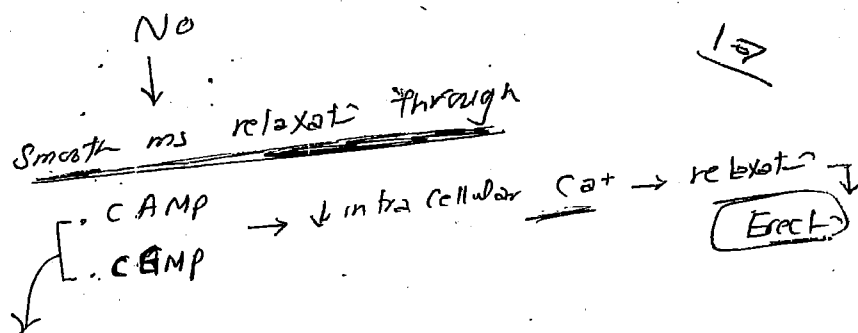 NO
↓
Smooth ms relaxatⁿ through
. CAMP
. CGMP
→ ↓ intra cellular Ca+ → relaxatⁿ
↓
Erectⁿ